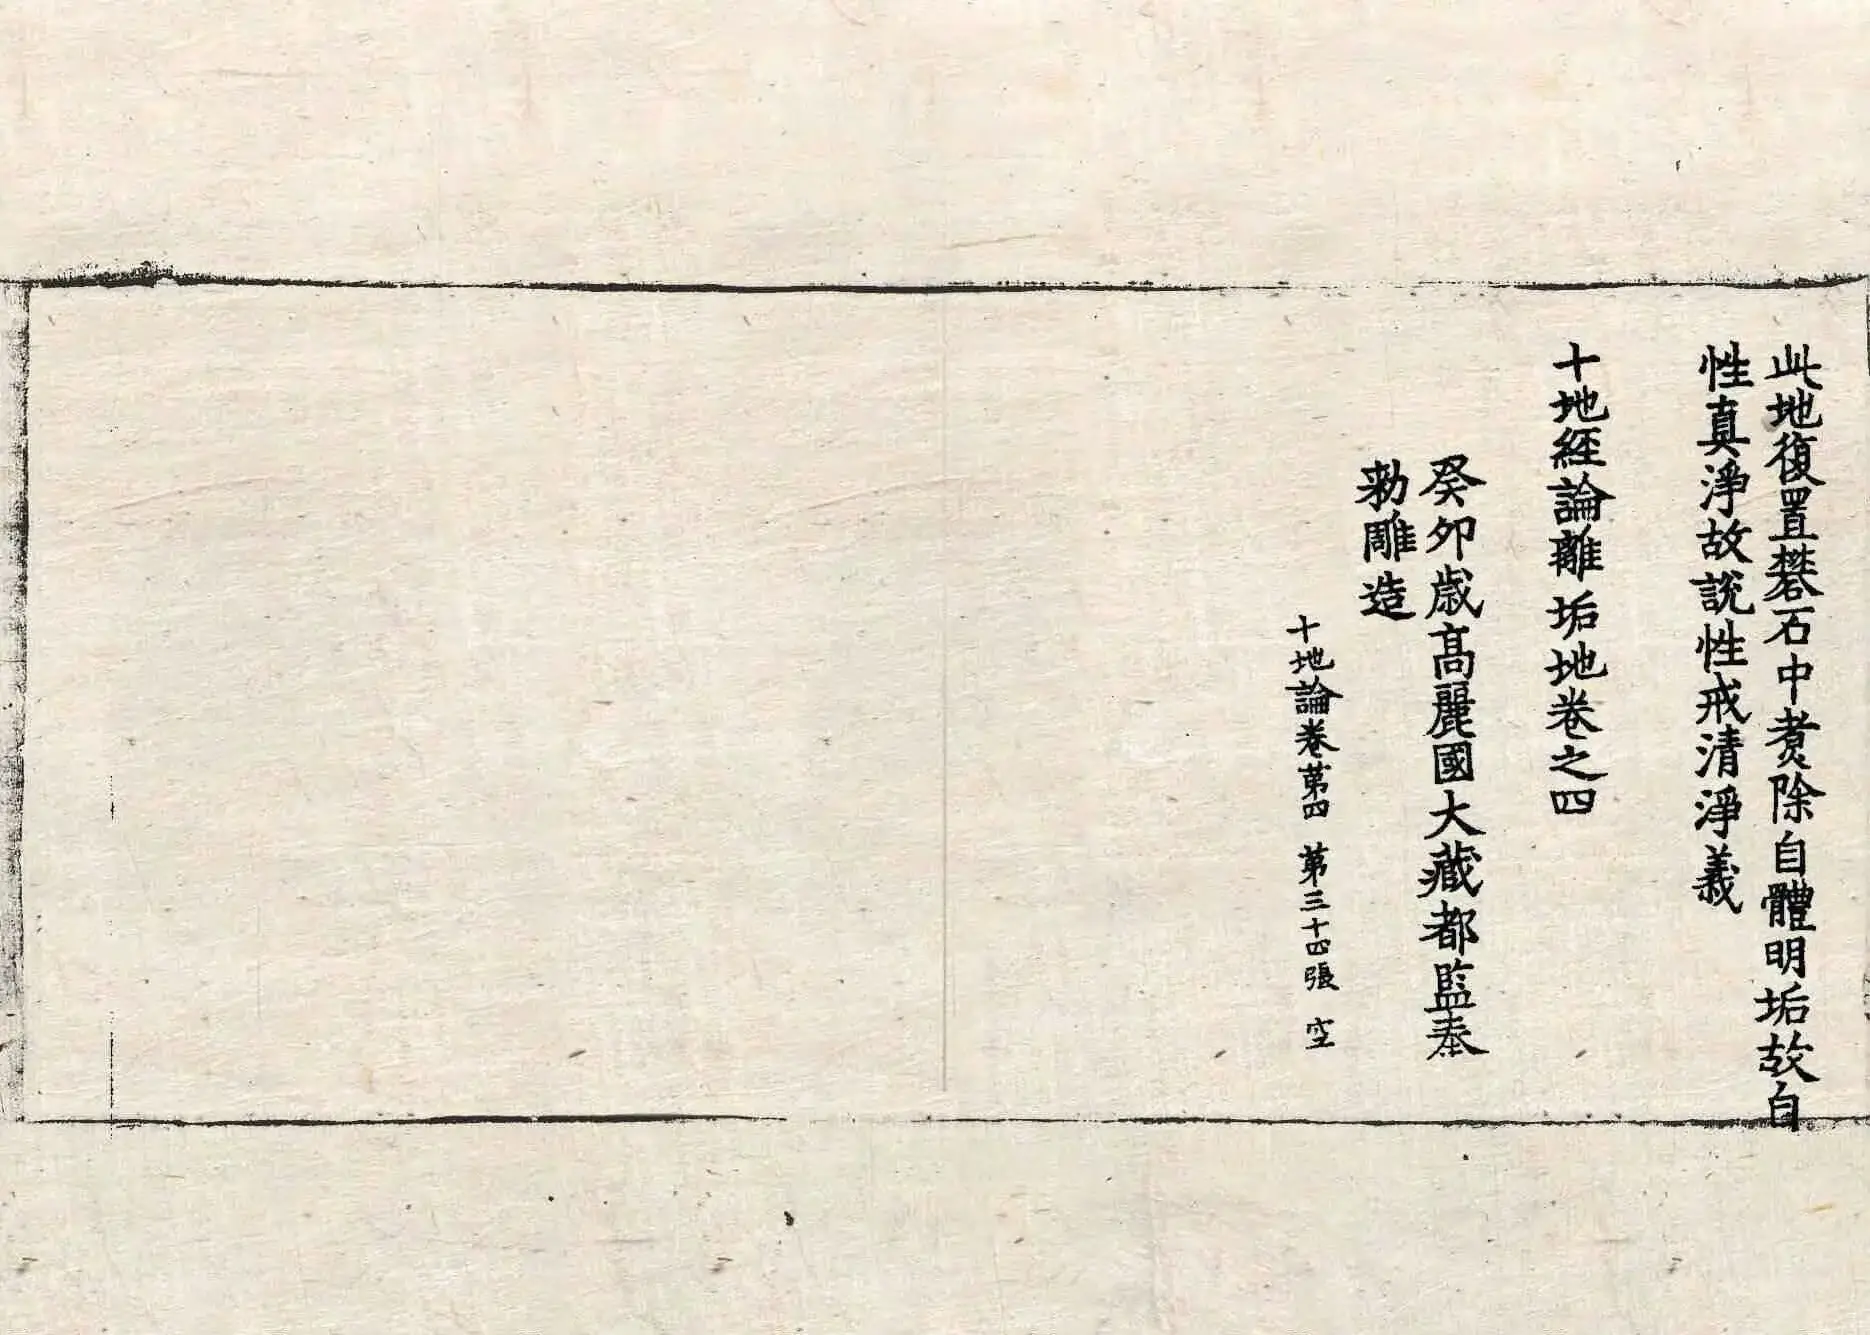 此地復置礬石中煑除自體明垢故自
性真淨故說性戒清淨義
十地經論離垢地卷之四
癸卯歲高麗國大藏都監奉
勅雕造
十地論卷第四 第三十四張 空